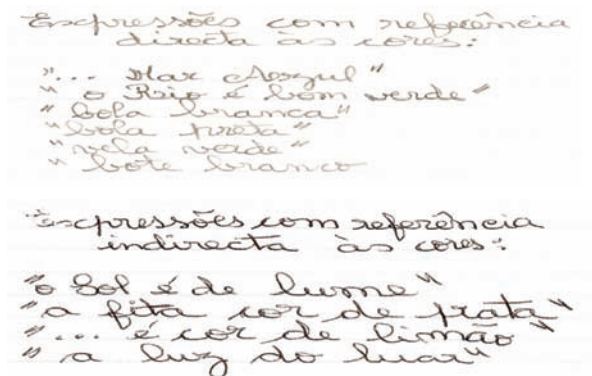 Expressões com referência
directa às cores:
"... Mar Azul"
"o Rio é bom verde"
"bola branca"
"bola preta"
"vela verde"
"bote branco
Expressões com referência
indirecta às cores:
"o Sol é de lume"
"a fita cor de prata"
"... é cor de limão"
"a luz do luar"